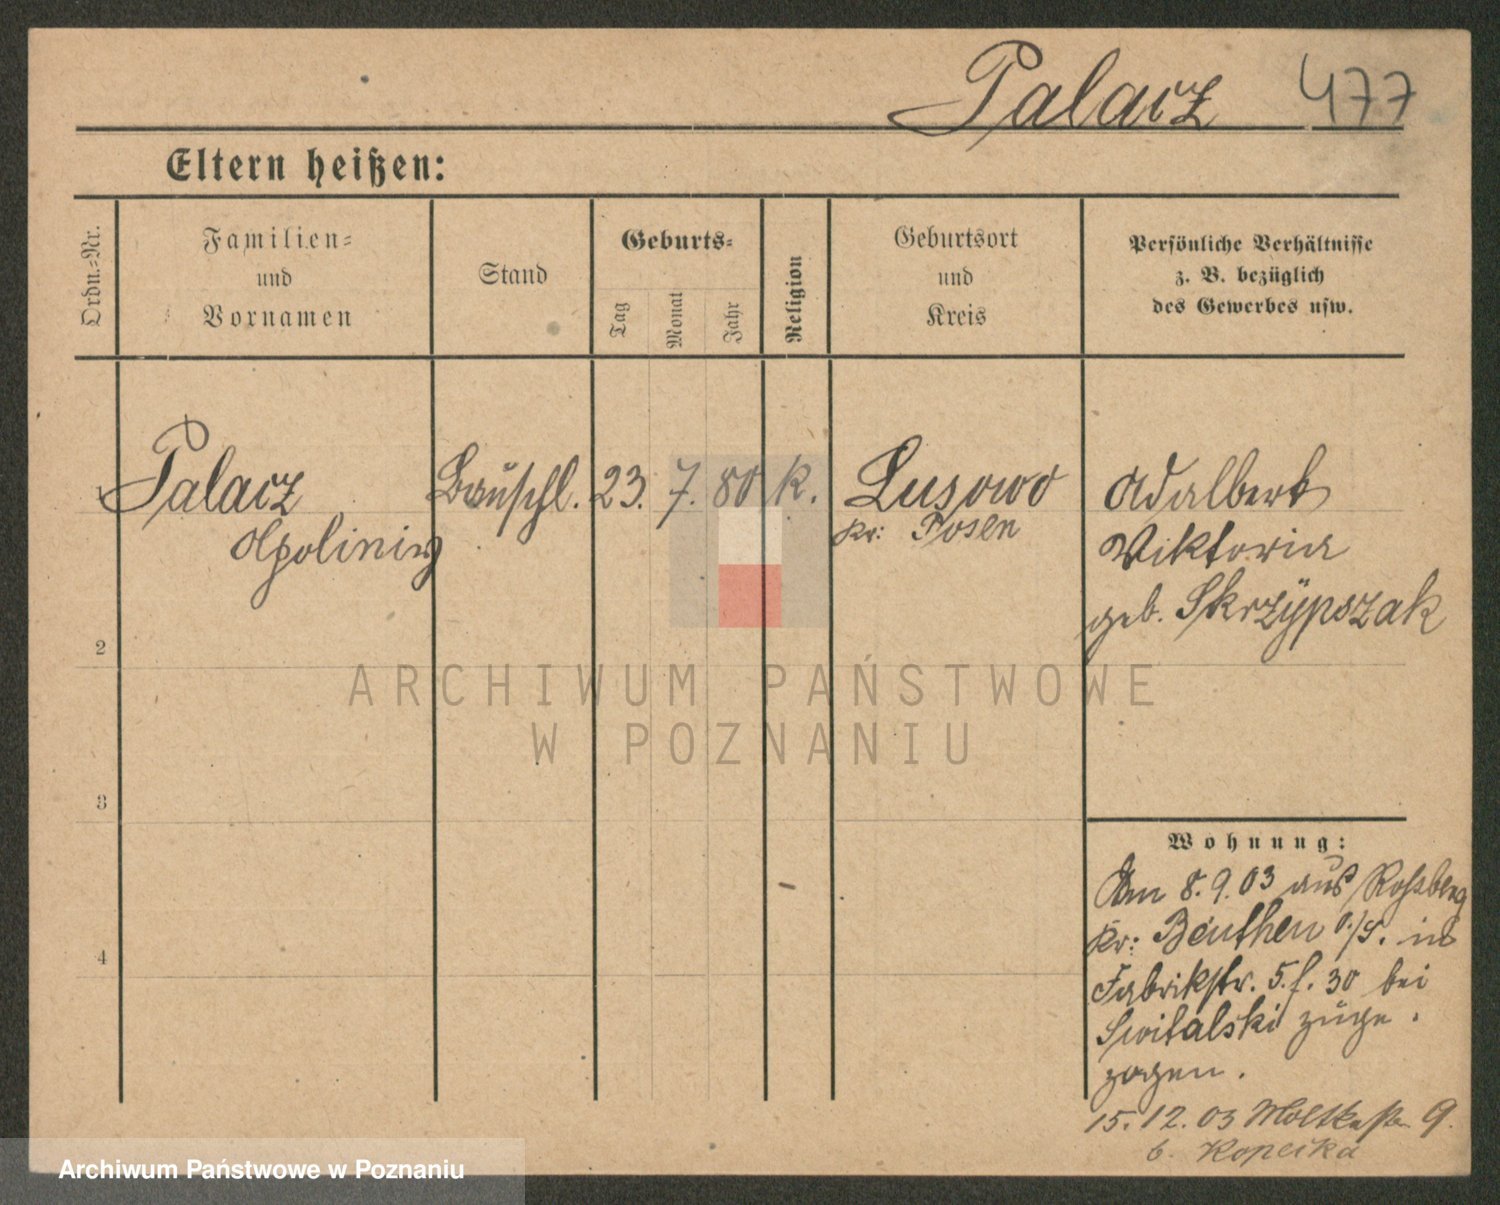 Palacz 477
Eltern heißen:
Ordn.-Nr.
Familien-
und
Vornamen
Stand
Geburts-
Tag
Monat
Jahr
Religion
Geburtsort
und
Kreis
Persönliche Verhältnisse
z. B. bezüglich
des Gewerbes usw.
1 Palacz Bauschl. 23. 7. 80 K. Lusowo Adalbert
kr: Posen
Viktoria
geb. Skrzypszak
2
3
4
Wohnung:
Am 8.9.03 aus Roßberg
Kr: Beuthen O/S. in
Fabrikstr. 5. f. 30 bei
Switalski zuge
zogen.
15.12.03 Moltkestr. 9.
b. Kopeika
ARCHIWUM PAŃSTWOWE
W POZNANIU
Archiwum Państwowe w Poznaniu